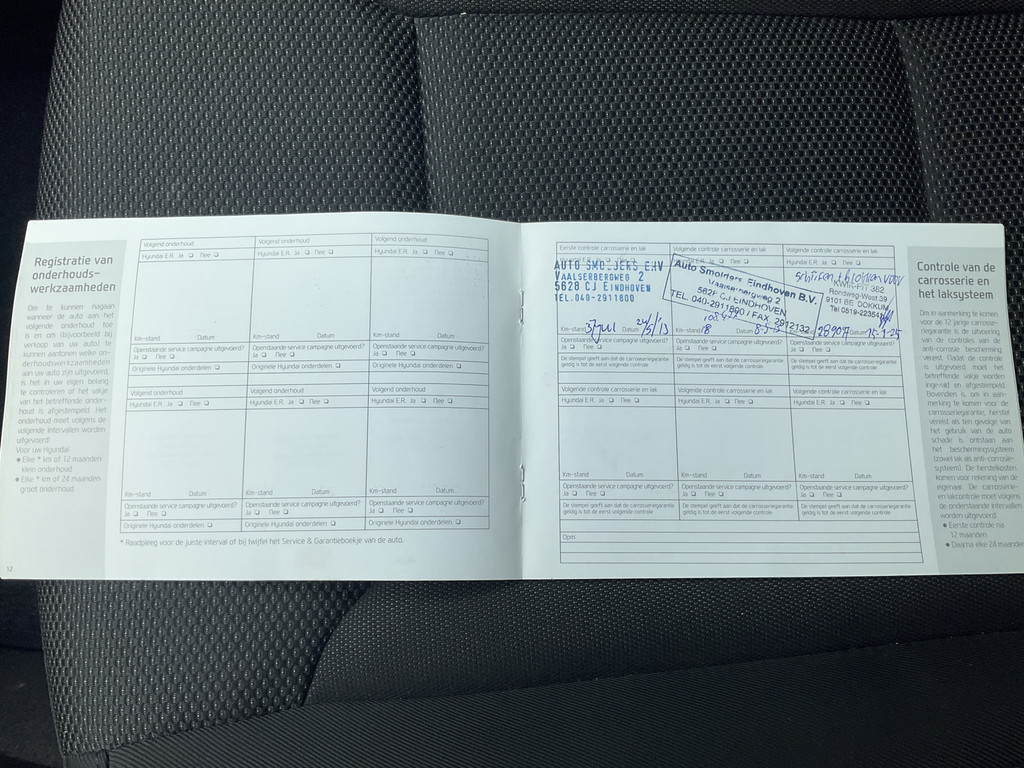 Registratie van
onderhouds-
werkzaamheden
Om te kunnen nagaan
wanneer de auto aan het
volgende onderhoud toe
is en om (bijvoorbeeld bij
verkoop van uw auto) te
kunnen aantonen welke on-
derhoudswerkzaamheden
aan uw auto zijn uitgevoerd,
is het in uw eigen belang
te controleren of het vakje
van het betreffende onder-
houd is afgestempeld. Het
onderhoud moet volgens de
volgende intervallen worden
uitgevoerd:
Voor uw Hyundai
● Elke * km of 12 maanden
klein onderhoud
● Elke * km of 24 maanden
groot onderhoud
12
Volgend onderhoud Volgend onderhoud Volgend onderhoud
Hyundai E.R. Ja ❏ Nee ❏ Hyundai E.R. Ja ❏ Nee ❏ Hyundai E.R. Ja ❏ Nee ❏
Km-stand Datum Km-stand Datum Km-stand Datum
Openstaande service campagne uitgevoerd? Openstaande service campagne uitgevoerd? Openstaande service campagne uitgevoerd?
Ja ❏ Nee ❏ Ja ❏ Nee ❏ Ja ❏ Nee ❏
Originele Hyundai onderdelen ❏ Originele Hyundai onderdelen ❏ Originele Hyundai onderdelen ❏
Volgend onderhoud Volgend onderhoud Volgend onderhoud
Hyundai E.R. Ja ❏ Nee ❏ Hyundai E.R. Ja ❏ Nee ❏ Hyundai E.R. Ja ❏ Nee ❏
Km-stand Datum Km-stand Datum Km-stand Datum
Openstaande service campagne uitgevoerd? Openstaande service campagne uitgevoerd? Openstaande service campagne uitgevoerd?
Ja ❏ Nee ❏ Ja ❏ Nee ❏ Ja ❏ Nee ❏
Originele Hyundai onderdelen ❏ Originele Hyundai onderdelen ❏ Originele Hyundai onderdelen ❏
* Raadpleeg voor de juiste interval of bij twijfel het Service & Garantieboekje van de auto.
Eerste controle carrosserie en lak Volgende controle carrosserie en lak Volgende controle carrosserie en lak
Hyundai E.R. Ja ❏ Nee ❏
AUTO SMOLDERS EHV
VAALSERBERGWEG 2
5628 CJ EINDHOVEN
TEL. 040-2911800
Auto Smolders Eindhoven B.V.
Vaalserbergweg 2
5628 CJ EINDHOVEN
TEL. 040-2911800 / FAX 2912132
KWIK-FIT 362
Rondweg-West 39
9101 BE DOKKUM
Km-stand Datum 24/5/13 Km-stand Datum 28907 Datum
Openstaande service campagne uitgevoerd? Openstaande service campagne uitgevoerd? Openstaande service campagne uitgevoerd?
Ja ❏ Nee ❏ Ja ❏ Nee ❏ Ja ❏ Nee ❏
De stempel geeft aan dat de carrosseriegarantie De stempel geeft aan dat de carrosseriegarantie De stempel geeft aan dat de carrosseriegarantie
geldig is tot de eerst volgende controle geldig is tot de eerst volgende controle geldig is tot de eerst volgende controle
Volgende controle carrosserie en lak Volgende controle carrosserie en lak Volgende controle carrosserie en lak
Hyundai E.R. Ja ❏ Nee ❏ Hyundai E.R. Ja ❏ Nee ❏ Hyundai E.R. Ja ❏ Nee ❏
Km-stand Datum Km-stand Datum Km-stand Datum
Openstaande service campagne uitgevoerd? Openstaande service campagne uitgevoerd? Openstaande service campagne uitgevoerd?
Ja ❏ Nee ❏ Ja ❏ Nee ❏ Ja ❏ Nee ❏
De stempel geeft aan dat de carrosseriegarantie De stempel geeft aan dat de carrosseriegarantie De stempel geeft aan dat de carrosseriegarantie
geldig is tot de eerst volgende controle geldig is tot de eerst volgende controle geldig is tot de eerst volgende controle
Opm.
Controle van de
carrosserie en
het laksysteem
Om in aanmerking te komen
voor de 12 jarige carrosse-
riegarantie is de uitvoering
van de controles van de
anti-corrosie bescherming
vereist. Nadat de controle
is uitgevoerd moet het
betreffende vakje worden
ingevuld en afgestempeld.
Bovendien is, om in aan-
merking te komen voor de
carrosseriegarantie, herstel
vereist als ten gevolge van
het gebruik van de auto
schade is ontstaan aan
het beschermingssysteem
(zowel lak als anti-corrosie-
systeem). De herstelkosten
komen voor rekening van de
eigenaar. De carrosserie-
en lakcontrole moet volgens
de onderstaande intervallen
worden uitgevoerd:
● Eerste controle na
12 maanden
● Daarna elke 24 maanden